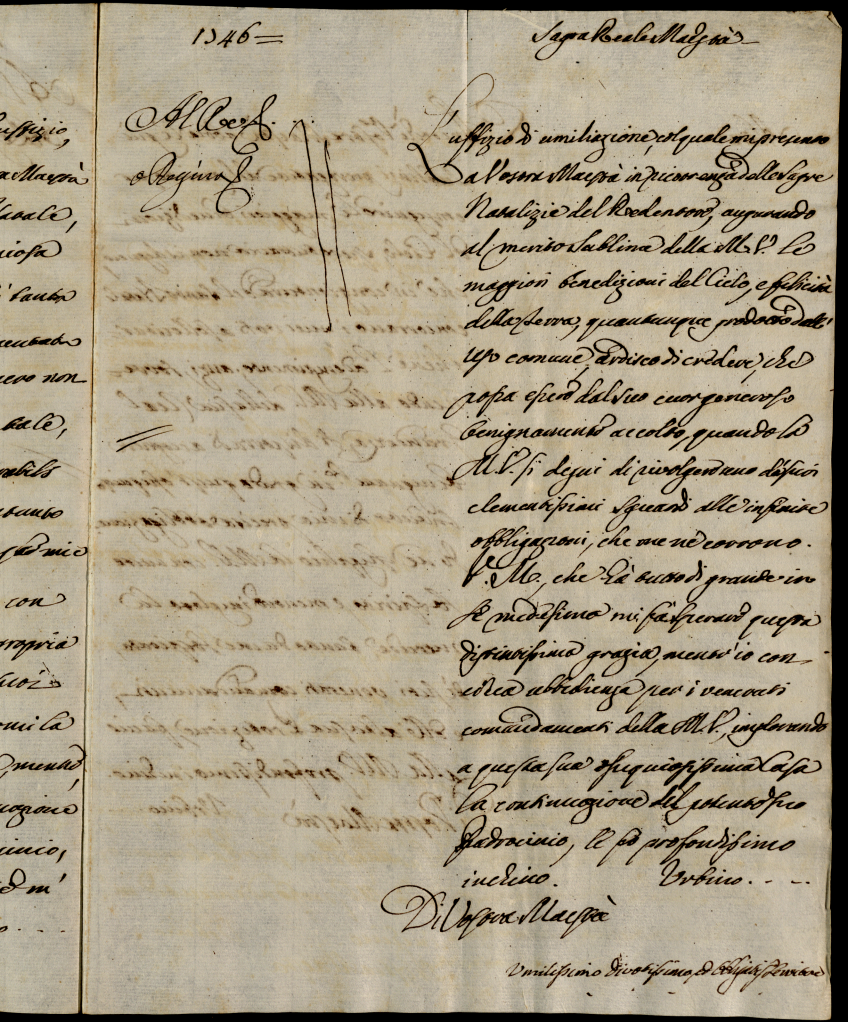 1746=
Sagra Reale Maestà
Al Re
e Regina
L'uffizio di umiliazione, col quale mi presento
a Vostra Maestà in ricorrenza delle Sagre
Natalizie del Redentore, augurando
al merito sublime della M. V. le
maggiori benedizioni del Cielo, e felicità
della terra, quantunque prodotto dall'
uso comune, ardisco di credere, che
possa essere dal suo cuor generoso
benignamente accolto, quando la
M. V. si degni di rivolgere uno de' suoi
clementissimi sguardi alle infinite
obbligazioni, che me ne corrono.
V. M., che hà tutto di grande in
se medesima mi fà sperare questa
distintissima grazia, mentr'io con
cieca ubbidienza per i venerati
comandamenti della M. V., implorando
a questa sua ossequiosissima Casa
la continuazione del potente suo
Padrocinio, le fò profondissimo
inchino. Urbino. - - -
Di Vostra Maestà
Umilissimo divotissimo, ed
uffizio,
ra Maestà
Natale,
iosa
tanta
ero non
tale,
con
propria
suoi
omi la
mente,
uazione
cinio,
ed m'